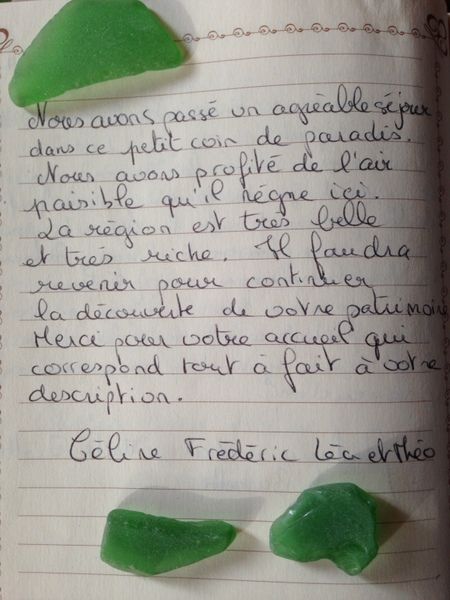 Nous avons passé un agréable séjour
dans ce petit coin de paradis.
Nous avons profité de l'air
paisible qu'il règne ici.
La région est très belle
et très riche. Il faudra
revenir pour continuer
la découverte de votre patrimoine
Merci pour votre accueil qui
correspond tout à fait à votre
description.
Céline Frédéric Léa et Théo